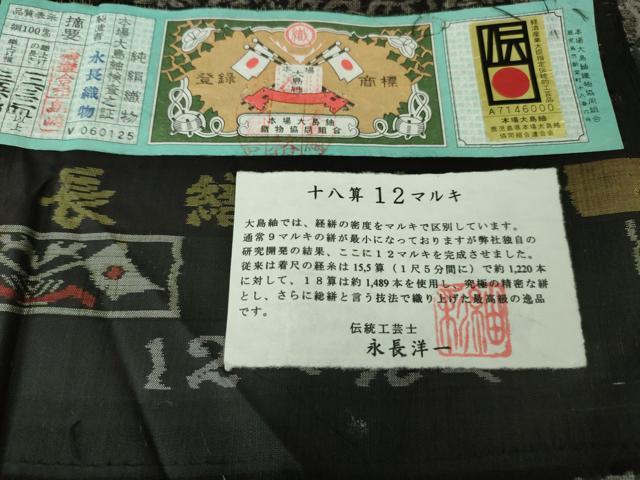 品質表示
絹100%
摘要
本場大島紬検査之証
純絹織物
製造者 永長織物
V 060125
登録
商標
本場
大島紬
本場大島紬
織物協同組合
経済産業大臣指定伝統的工芸品
伝
A7146000
本場大島紬
鹿児島県本場大島紬
協同組合連合会
本場大島紬織物協同組合
十八算 12マルキ
大島紬では、経絣の密度をマルキで区別しています。
通常9マルキの絣が最小になっておりますが弊社独自の
研究開発の結果、ここに12マルキを完成させました。
従来は着尺の経糸は15,5算(1尺5分間に)で約1,220本
に対して、18算は約1,489本を使用し、究極の精密な絣
とし、さらに総絣と言う技法で織り上げた最高級の逸品
です。
伝統工芸士
永長洋一
長
12